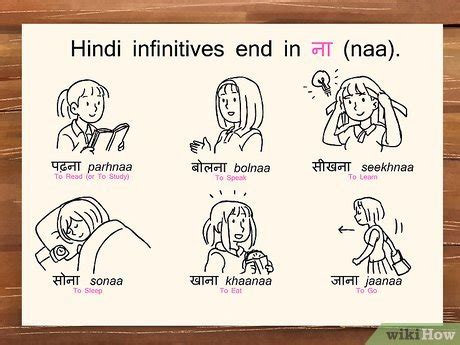 Hindi infinitives end in ना (naa).
पढ़ना parhnaa
To Read (or To Study)
बोलना bolnaa
To Speak
सीखना seekhnaa
To Learn
सोना sonaa
To Sleep
खाना khaanaa
To Eat
जाना jaanaa
To Go
wikiHow